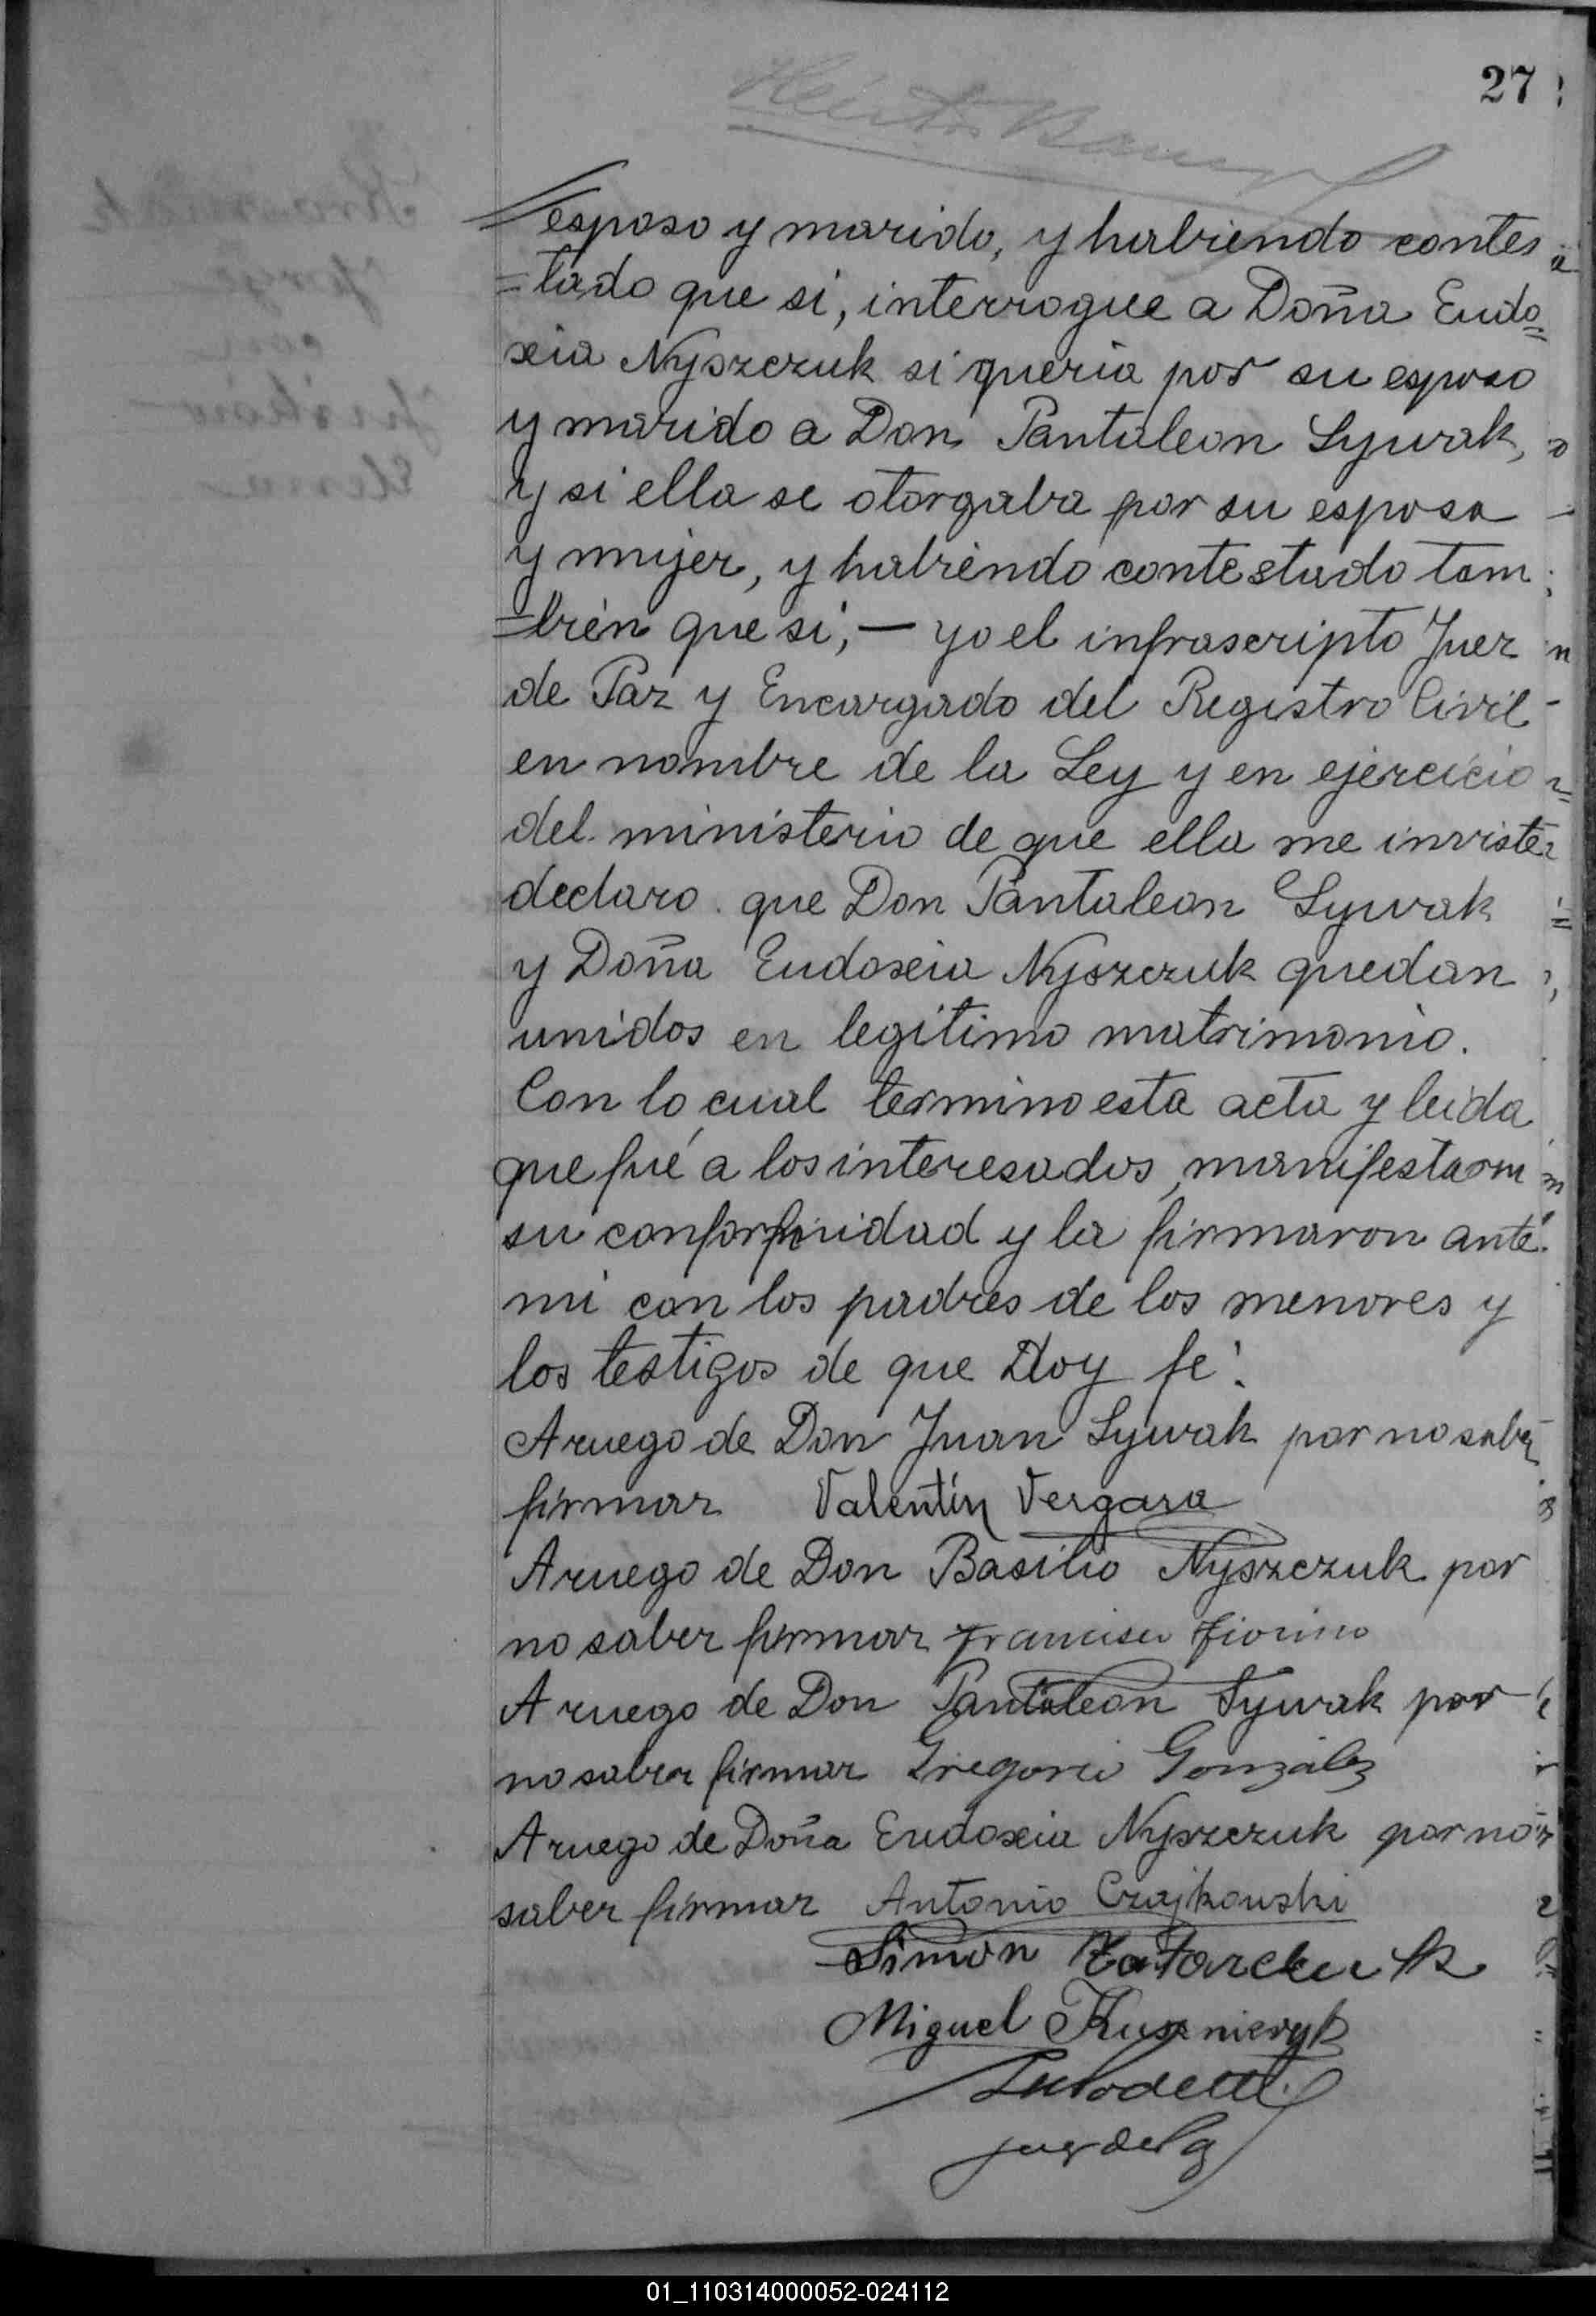 27
esposo y marido, y habiendo contes
=tado que si, interrogue a Doña Eudo=
xia Nyszczuk si queria por su esposo
y marido a Don Pantaleon Sywak,
y si ella se otorgaba por su esposa
y mujer, y habiendo contestado tam
=bién que si,— yo el infrascripto Juez
de Paz y Encargado del Registro Civil
en nombre de la Ley y en ejercicio
del ministerio de que ella me inviste
declaro que Don Pantaleon Sywak
y Doña Eudoxia Nyszczuk quedan
unidos en legitimo matrimonio.
Con lo cual termino esta acta y leida
que fué a los interesados, manifestaron
su conformidad y la firmaron ante
mi con los padres de los menores y
los testigos de que Doy fe.
A ruego de Don Juan Sywak por no saber
firmar Valentín Vergara
A ruego de Don Basilio Nyszczuk por
no saber firmar Francisco Fiorino
A ruego de Don Pantaleon Sywak por
no saber firmar Gregorio González
A ruego de Doña Eudoxia Nyszczuk por no
saber firmar Antonio Czajkowski
Simon Zatarchuk
Miguel Kuznieryk
juez de Paz
01_110314000052-024112